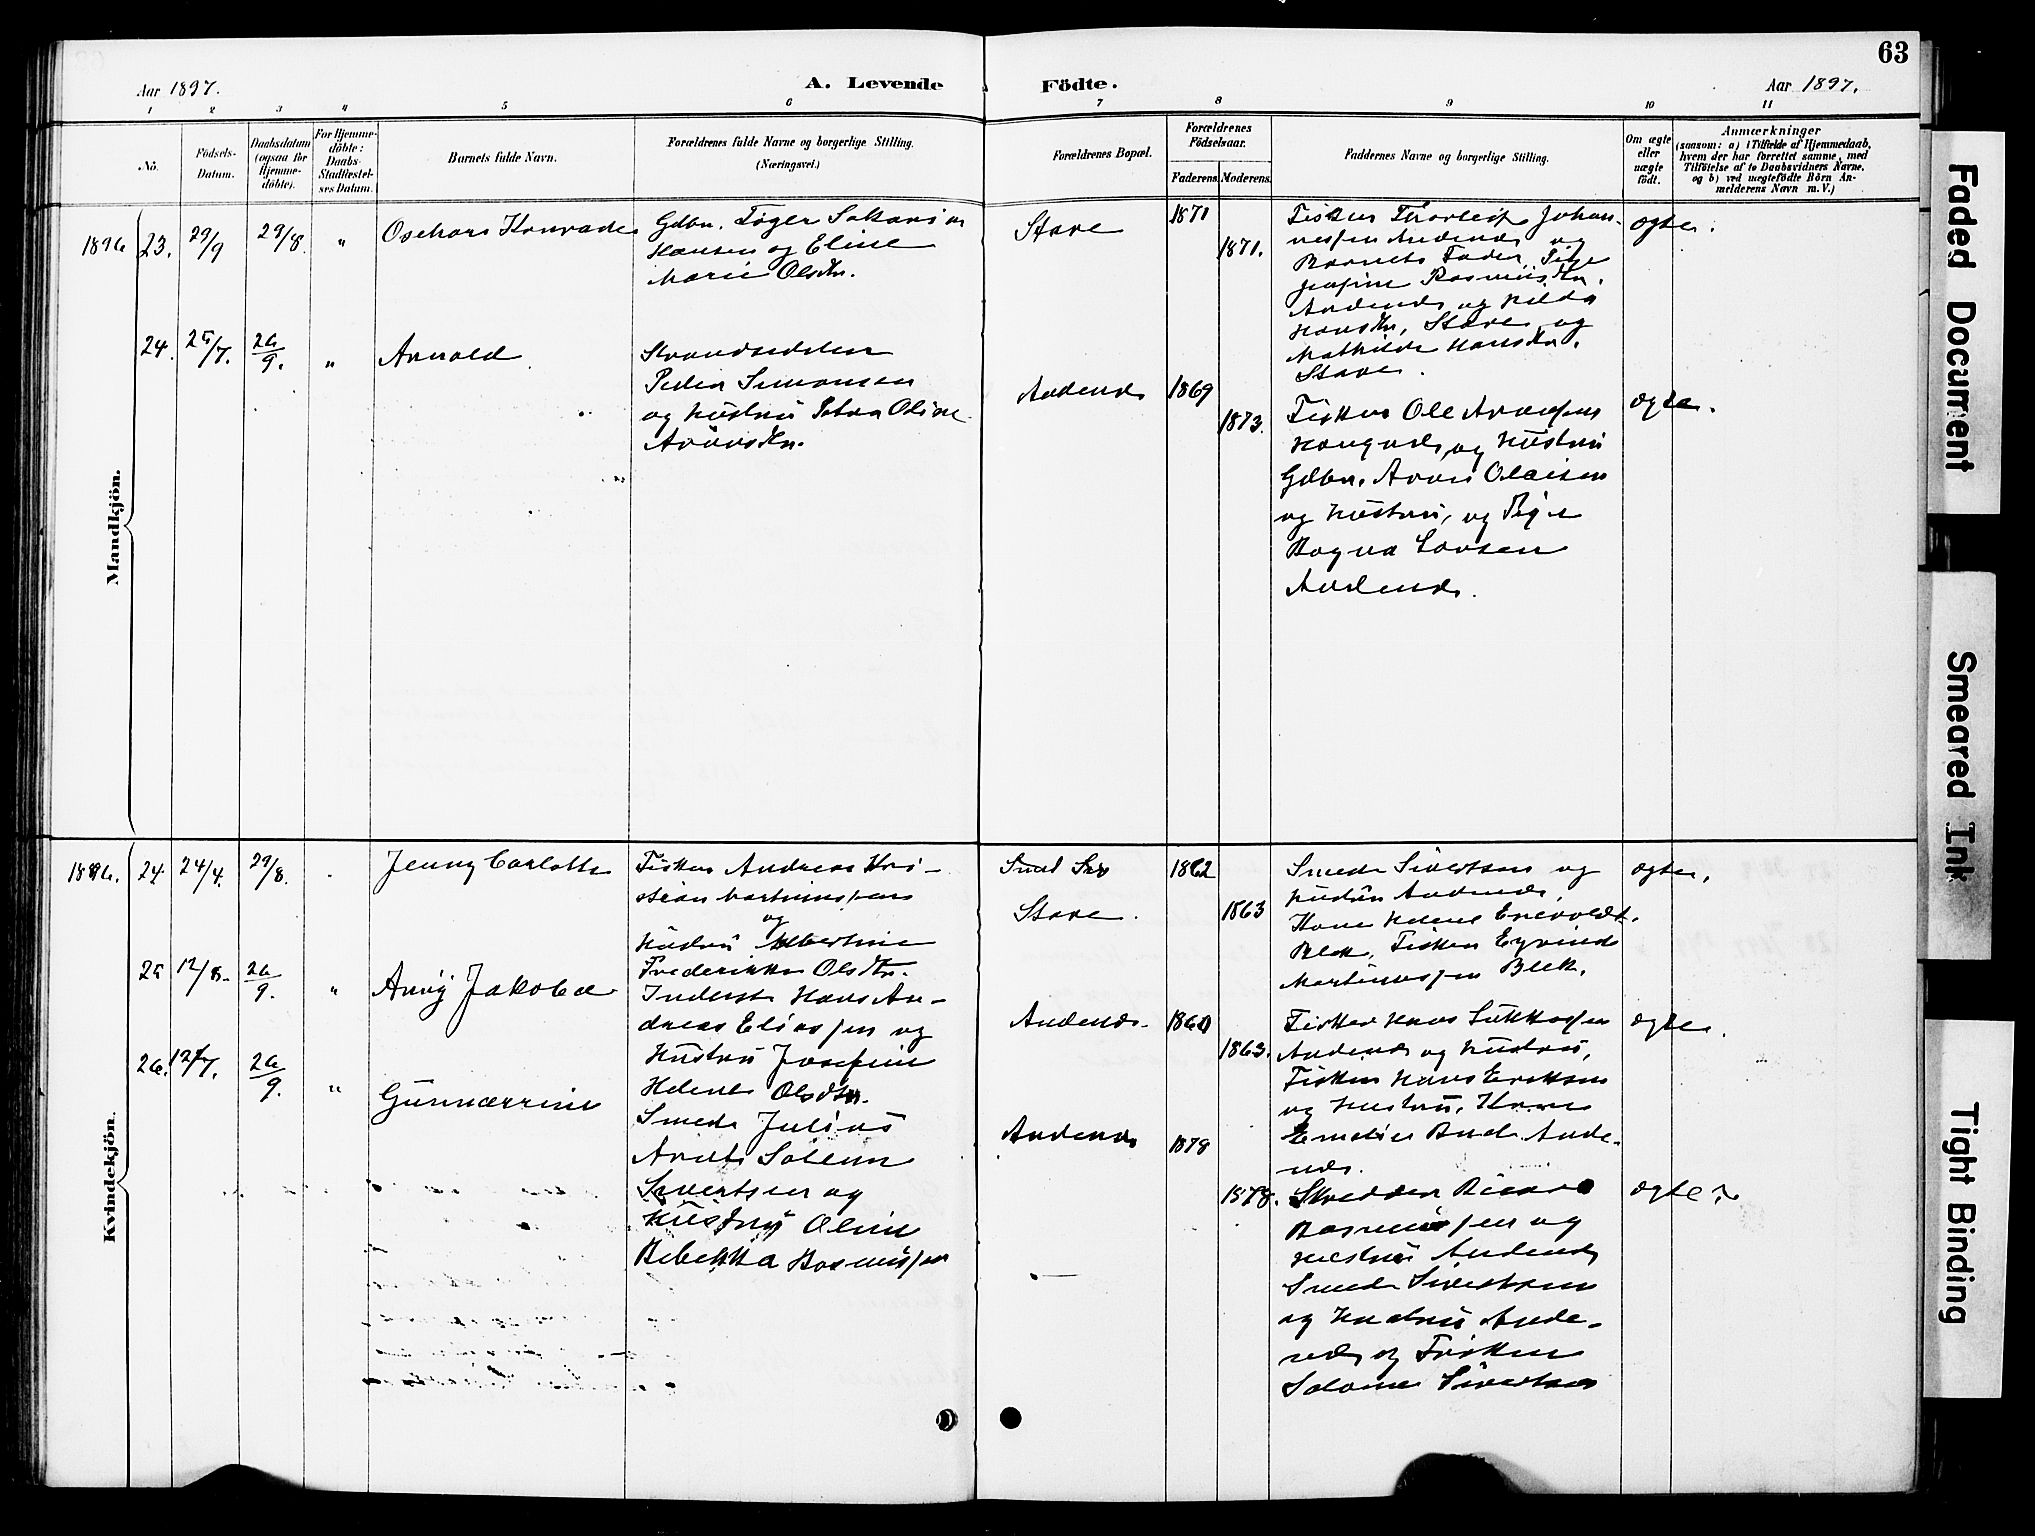 63
Aar 1897.
A. Levende
Födte.
Aar 1897.
1 2 3 4 5 6 7 8 9 10 11
No.
Födsels-
Datum.
Daabsdatum
(ogsaa for
Hjemme-
döbte).
For Hjemme-
döbte:
Daabs-
Stadfæstel-
ses Datum.
Barnets fulde Navn.
Forældrenes fulde Navne og borgerlige Stilling.
(Næringsvei.)
Forældrenes Bopæl.
Forældrenes
Födselsaar.
Faderens.
Moderens.
Faddernes Navne og borgerlige Stilling.
Om ægte
eller
uægte
födt.
Anmærkninger
(saasom: a) i Tilfælde af Hjemmedaab,
hvem der har forrettet samme, med
Tilföielse af to Daabsvidners Navne,
og b) ved uægtefödte Börn An-
melderens Navn m. V.)
Mandkjön.
1896 23. 29/9 29/8. "
Gdbr. Tøger
Hansen og Eline
Marie Olsdtr.
Stave
1871
1871.
Fisker Thorleif Johan-
nessen Andenæs og
Barnets Fader, Pige
Josefine Rasmusdtr.
Andenæs og Hilda
Hansdtr, Stave og
Mathilde Hansdtr.
Stave.
ægte.
24. 25/7. 26/9. "
Arnold
Strandsidder
Peder Simonsen
og Hustru Petra Oline
Andenæs
1869
1873.
Fisker Ole
og Hustru
Gdbr.
og Hustru, og Pige
Larsen
Andenæs.
ægte.
Kvindekjön.
1896. 24. 24/4. 29/8.
Jenny Carlotte
Fisker Andreas Kri-
stian Martinussen
og
Hustru Albertine
Frederikke Olsdtr.
Stave.
1862
1863
Smed Sivertsen og
Hustru Andenæs,
Kone Helene
Blek, Fisker Eyvind
Martinussen Blek.
ægte.
25 26/9. "
Jakobea
Inderst Hans An-
dreas Eliassen og
Hustru Josefine
Helene Olsdtr.
Andenæs.
1860
1863.
Fisker Hans
Andenæs og Hustru,
Fisker Hans Eriksen
og Hustru, Kone
Ande-
næs.
ægte.
26. 12/7. 26/9. "
Smed Julius
Sivertsen og
Hustru Oline
Rebekka Rasmussen
Andenæs
1878
1878.
Skrædder
Rasmussen og
Hustru Andenæs
Smed Sivertsen
og Hustru Ande-
næs og Fisker
Sivertsen
ægte.
Faded Document
Smeared Ink
Tight Binding